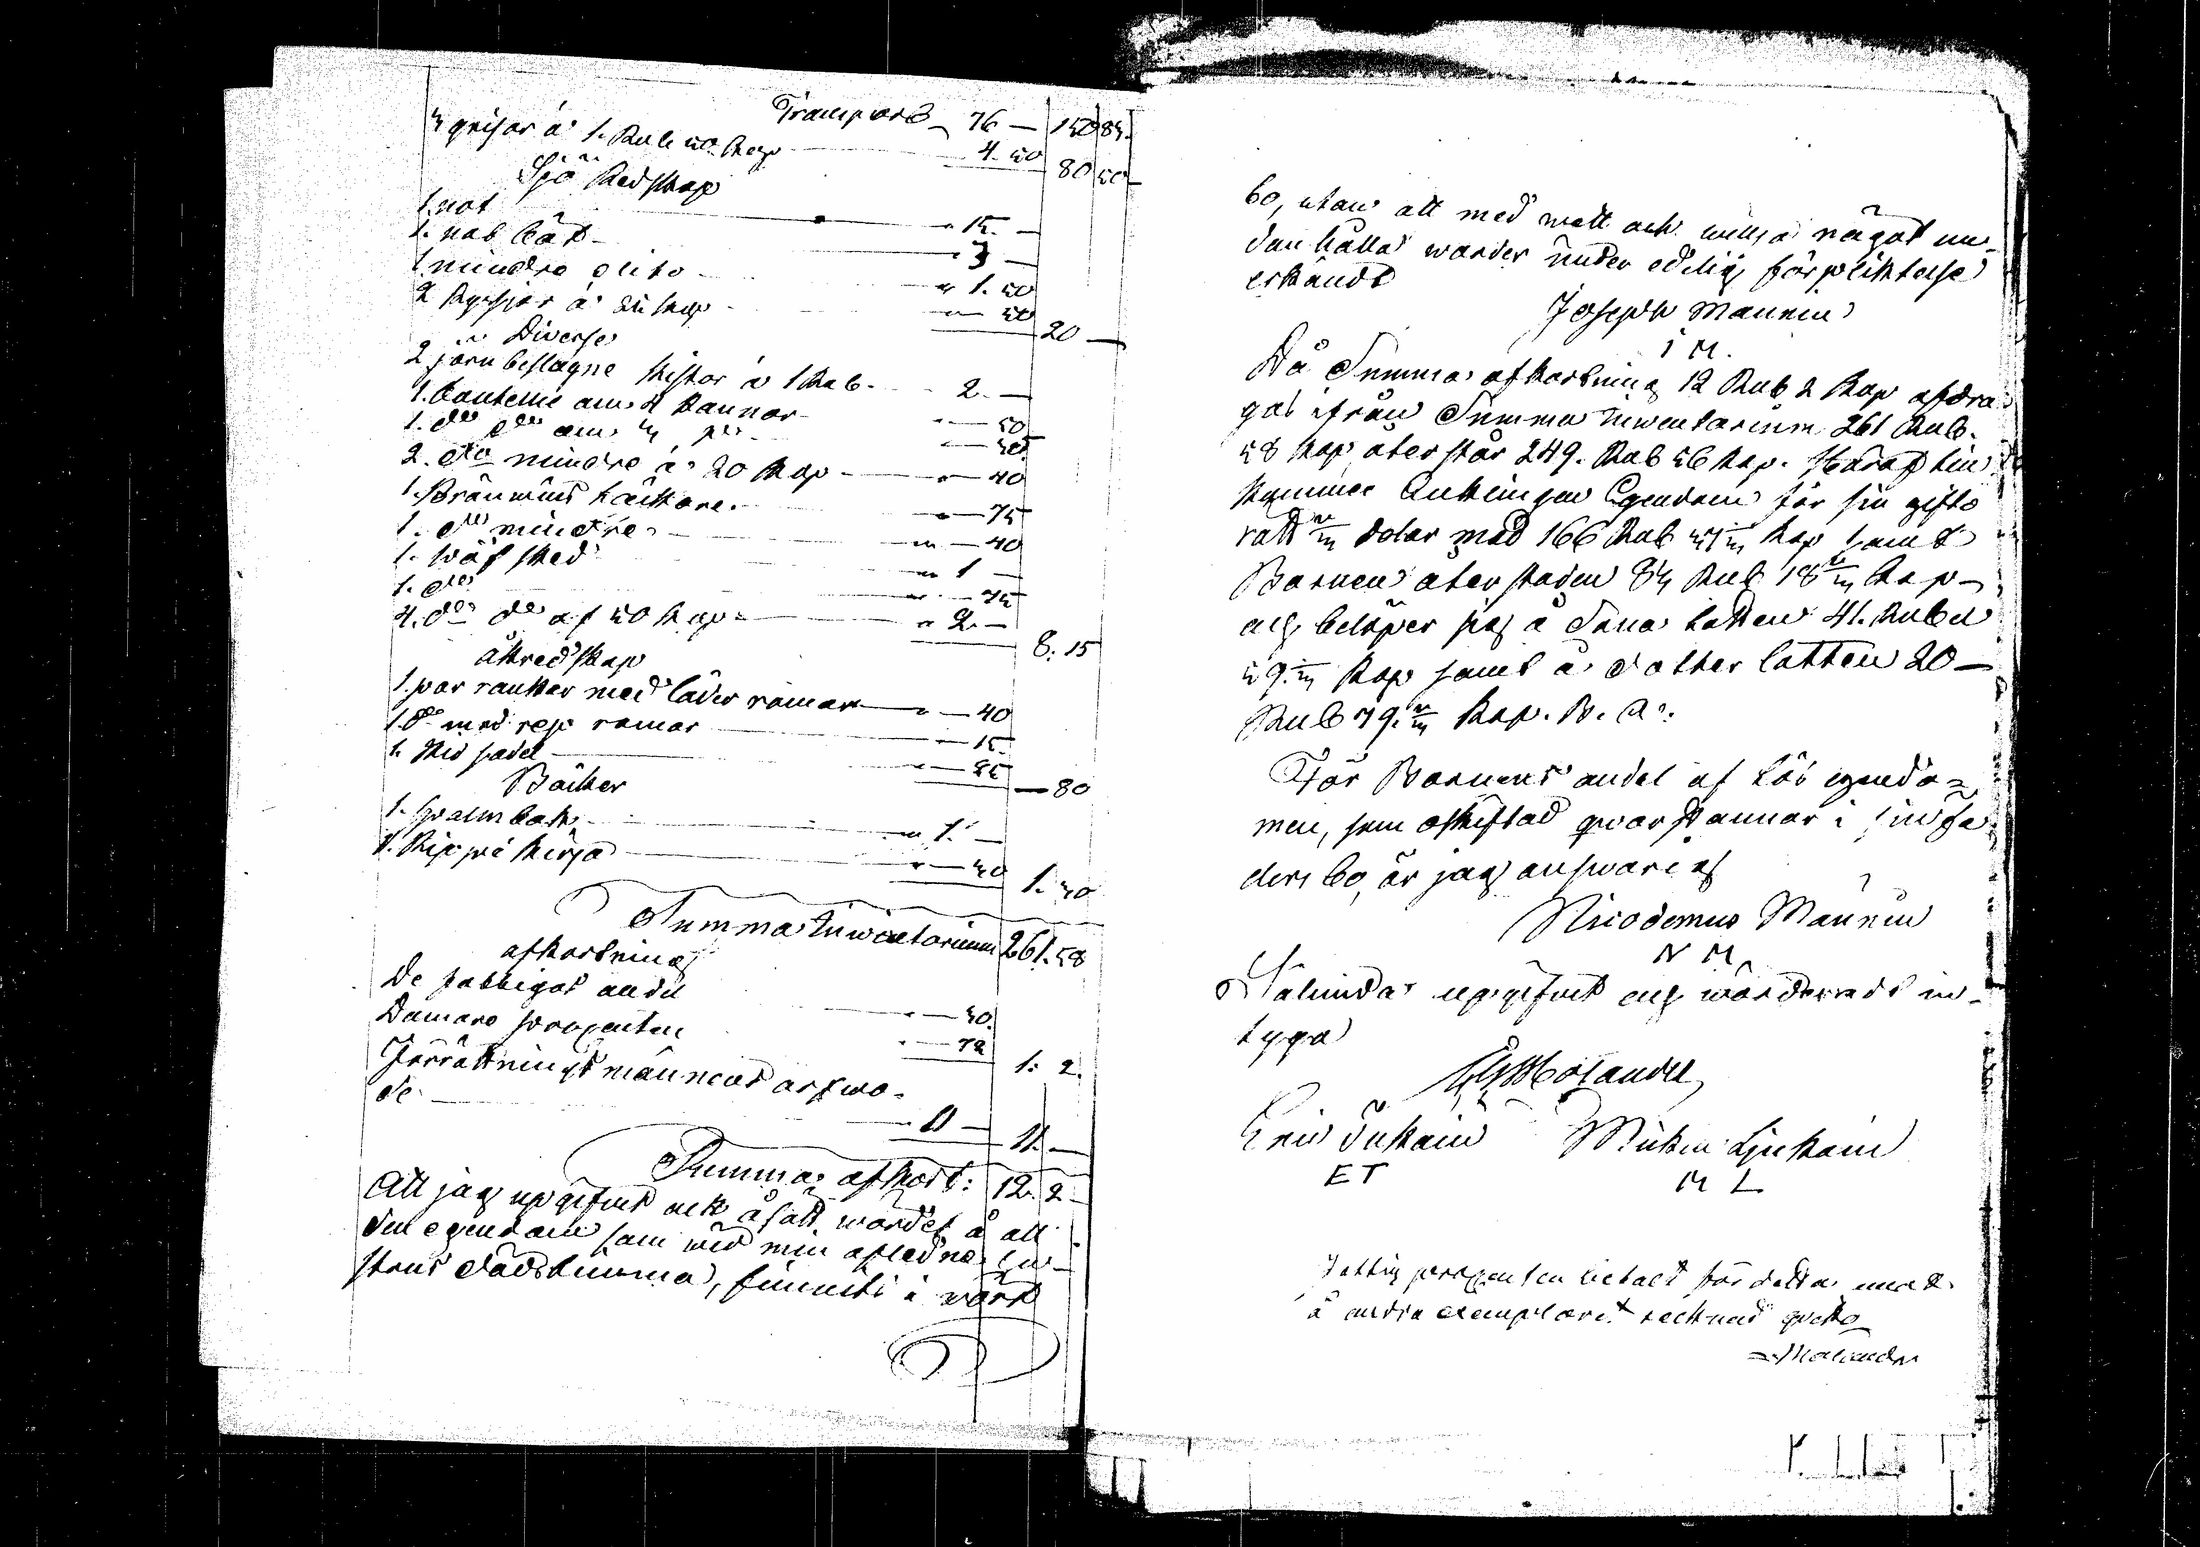 Transport 76 — 150 85.
3 grisar á 1. Rub 50. Kop 4. 50 80 50
Sjö Redskap
1. not 15. —
1. not båt 3 —
1. mindre dito 1. 50
2 Ryssjor á 25 Kop 50 20 —
Diverse
2 järn beslagne Kistor á 1 Rub. 2. —
1. om 4 Kannor 50
1. do do om 3 do
2. do mindre á 20 Kop 40
1. Bränwins 75
1. do mindre 40
1. Wäf sked 1 —
1. do 75
4. do do af 50 Kop 2. — 8. 15
åkredskap
1. par rankor med läder remar 40
1. do med rep remar 15.
1. Rid sadel 25 — 80
Böcker
1. psalmbok 1. —
1. 30 1. 30
Summa Inwentarium 261. 58
afkortning
De fattigas andel 30.
Domare procenten 72 1. 2.
Förrättnings männens arfwo-
de 11 — 11. —
Summa afkort: 12. 2
Att jag upgifwit ock åsatt wärdet å all
den egendom som wid min aflednes hu-
strus dödstimma, funnits i wårt
bo, utan att med wett ock wilja något un-
dan hållit warder under edelig förpliktelse
erkändt
Joseph Mannin
I M.
Då Summa afkortning 12 Rub 2 Kop afdra-
gas ifrån Summa Inwentarium 261 Rub.
58 Kop återstår 249. Rub 56 Kop. Häraf till
kommer Enklingen Egendom för sin gifto
rätt 2/3 delar med 166 Rub 37 1/3 Kop samt
Barnen återstoden 83 Rub 18 2/3 Kop
ock belöper sig å Sona lotten 41. Rubel
59. 1/3 Kop samt å dotter lotten 20 —
Rub 79. 2/3 Kop. B. A.
För Barnens andel af lös egendo-
men, som oskiftad qwarstannar i sin fa-
ders bo, är jag answarig
Nicodemus Mannin
N M.
Sålunda upgifwit ock wärderadt in-
tyga
Molander
Eric Tukain Mickel Ljukain
E T M L
Fattig procenten betalt för detta
å andra exemplaret tecknad qwitto
Molander